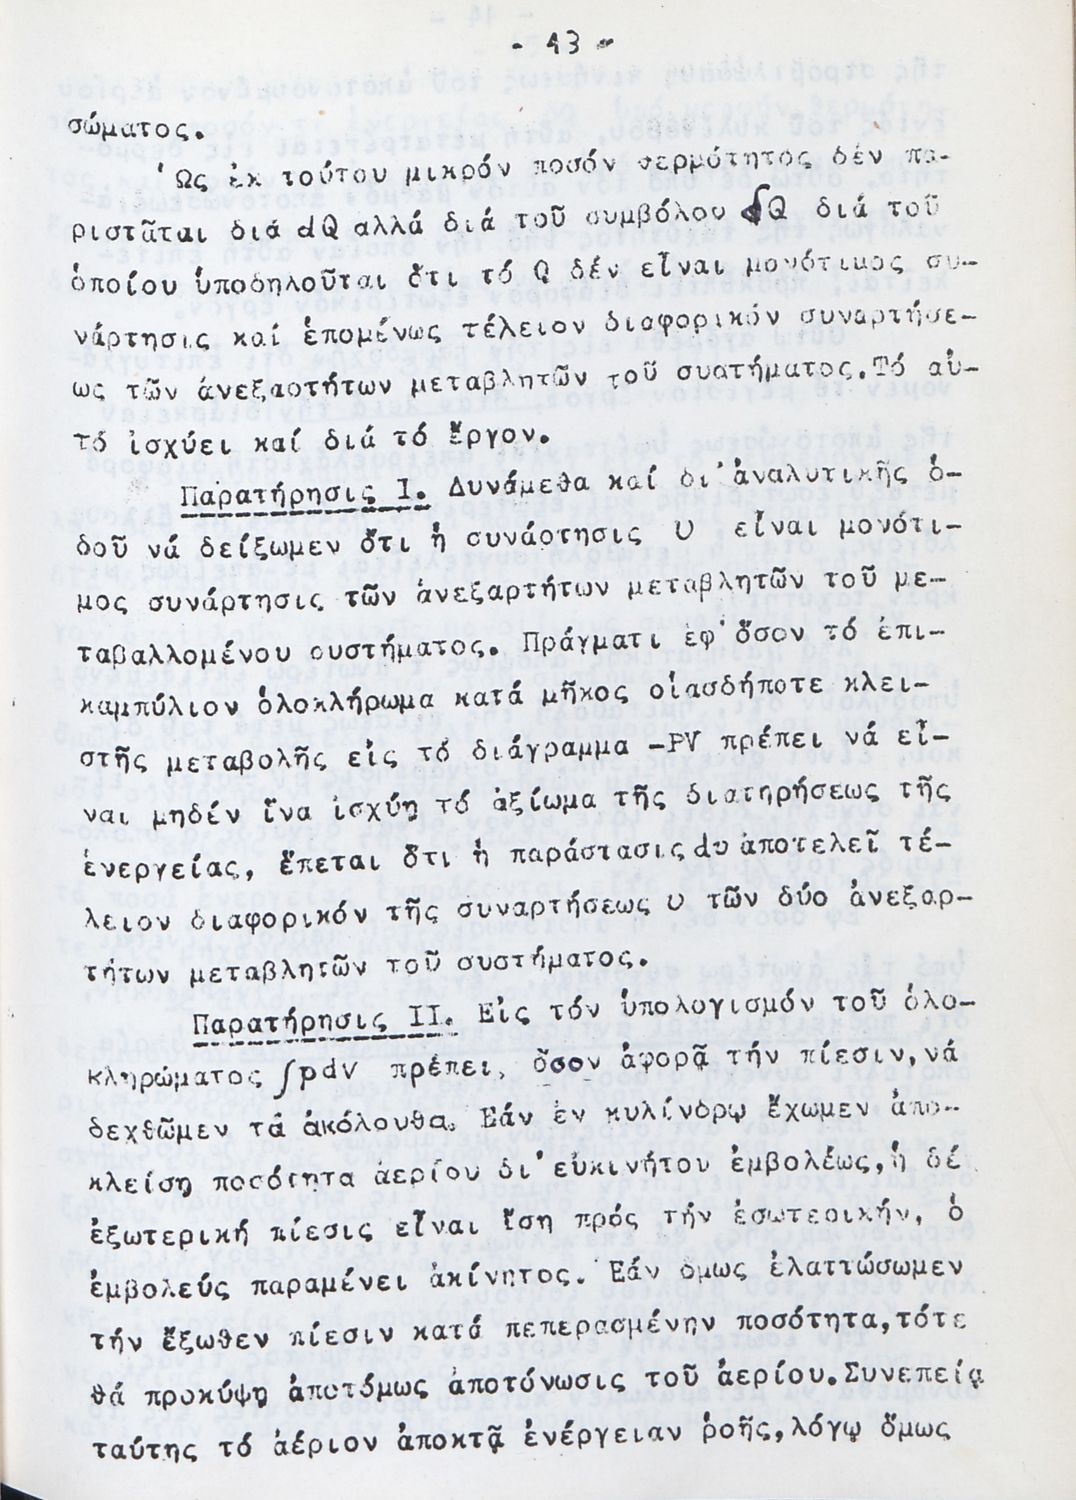 - 13 -
σώματος.
Ὡς ἐκ τούτου μικρόν ποσόν θερμότητος δέν πα-
ριστᾶται διά dQ ἀλλά διά τοῦ συμβόλου δQ διά τοῦ
ὁποίου ὑποδηλοῦται ὅτι τό Q δέν εἶναι μονότιμος συ-
νάρτησις καί ἑπομένως τέλειον διαφορικόν συναρτήσε-
ως τῶν ἀνεξαρτήτων μεταβλητῶν τοῦ συστήματος. Τό αὐ-
τό ἰσχύει καί διά τό ἔργον.
Παρατήρησις I. Δυνάμεθα καί δι᾽ ἀναλυτικῆς ὁ-
δοῦ νά δείξωμεν ὅτι ἡ συνάρτησις U εἶναι μονότι-
μος συνάρτησις τῶν ἀνεξαρτήτων μεταβλητῶν τοῦ με-
ταβαλλομένου συστήματος. Πράγματι ἐφ᾽ ὅσον τό ἐπι-
καμπύλιον ὁλοκλήρωμα κατά μῆκος οἱασδήποτε κλει-
στῆς μεταβολῆς εἰς τό διάγραμμα -PV πρέπει νά εἶ-
ναι μηδέν ἵνα ἰσχύῃ τό ἀξίωμα τῆς διατηρήσεως τῆς
ἐνεργείας, ἕπεται ὅτι ἡ παράστασις dυ ἀποτελεῖ τέ-
λειον διαφορικόν τῆς συναρτήσεως υ τῶν δύο ἀνεξαρ-
τήτων μεταβλητῶν τοῦ συστήματος.
Παρατήρησις II. Εἰς τόν ὑπολογισμόν τοῦ ὁλο-
κληρώματος ∫pdv πρέπει, ὅσον ἀφορᾷ τήν πίεσιν, νά
δεχθῶμεν τά ἀκόλουθα. Ἐάν ἐν κυλίνδρῳ ἔχωμεν ἀπο-
κλείσῃ ποσότητα ἀερίου δι᾽ εὐκινήτου ἐμβολέως, ἡ δέ
ἐξωτερική πίεσις εἶναι ἴση πρός τήν ἐσωτερικήν, ὁ
ἐμβολεύς παραμένει ἀκίνητος. Ἐάν ὅμως ἐλαττώσωμεν
τήν ἔξωθεν πίεσιν κατά πεπερασμένην ποσότητα, τότε
θά προκύψῃ ἀποτόμως ἀποτόνωσις τοῦ ἀερίου. Συνεπείᾳ
ταύτης τό ἀέριον ἀποκτᾷ ἐνέργειαν ῥοῆς, λόγῳ ὅμως